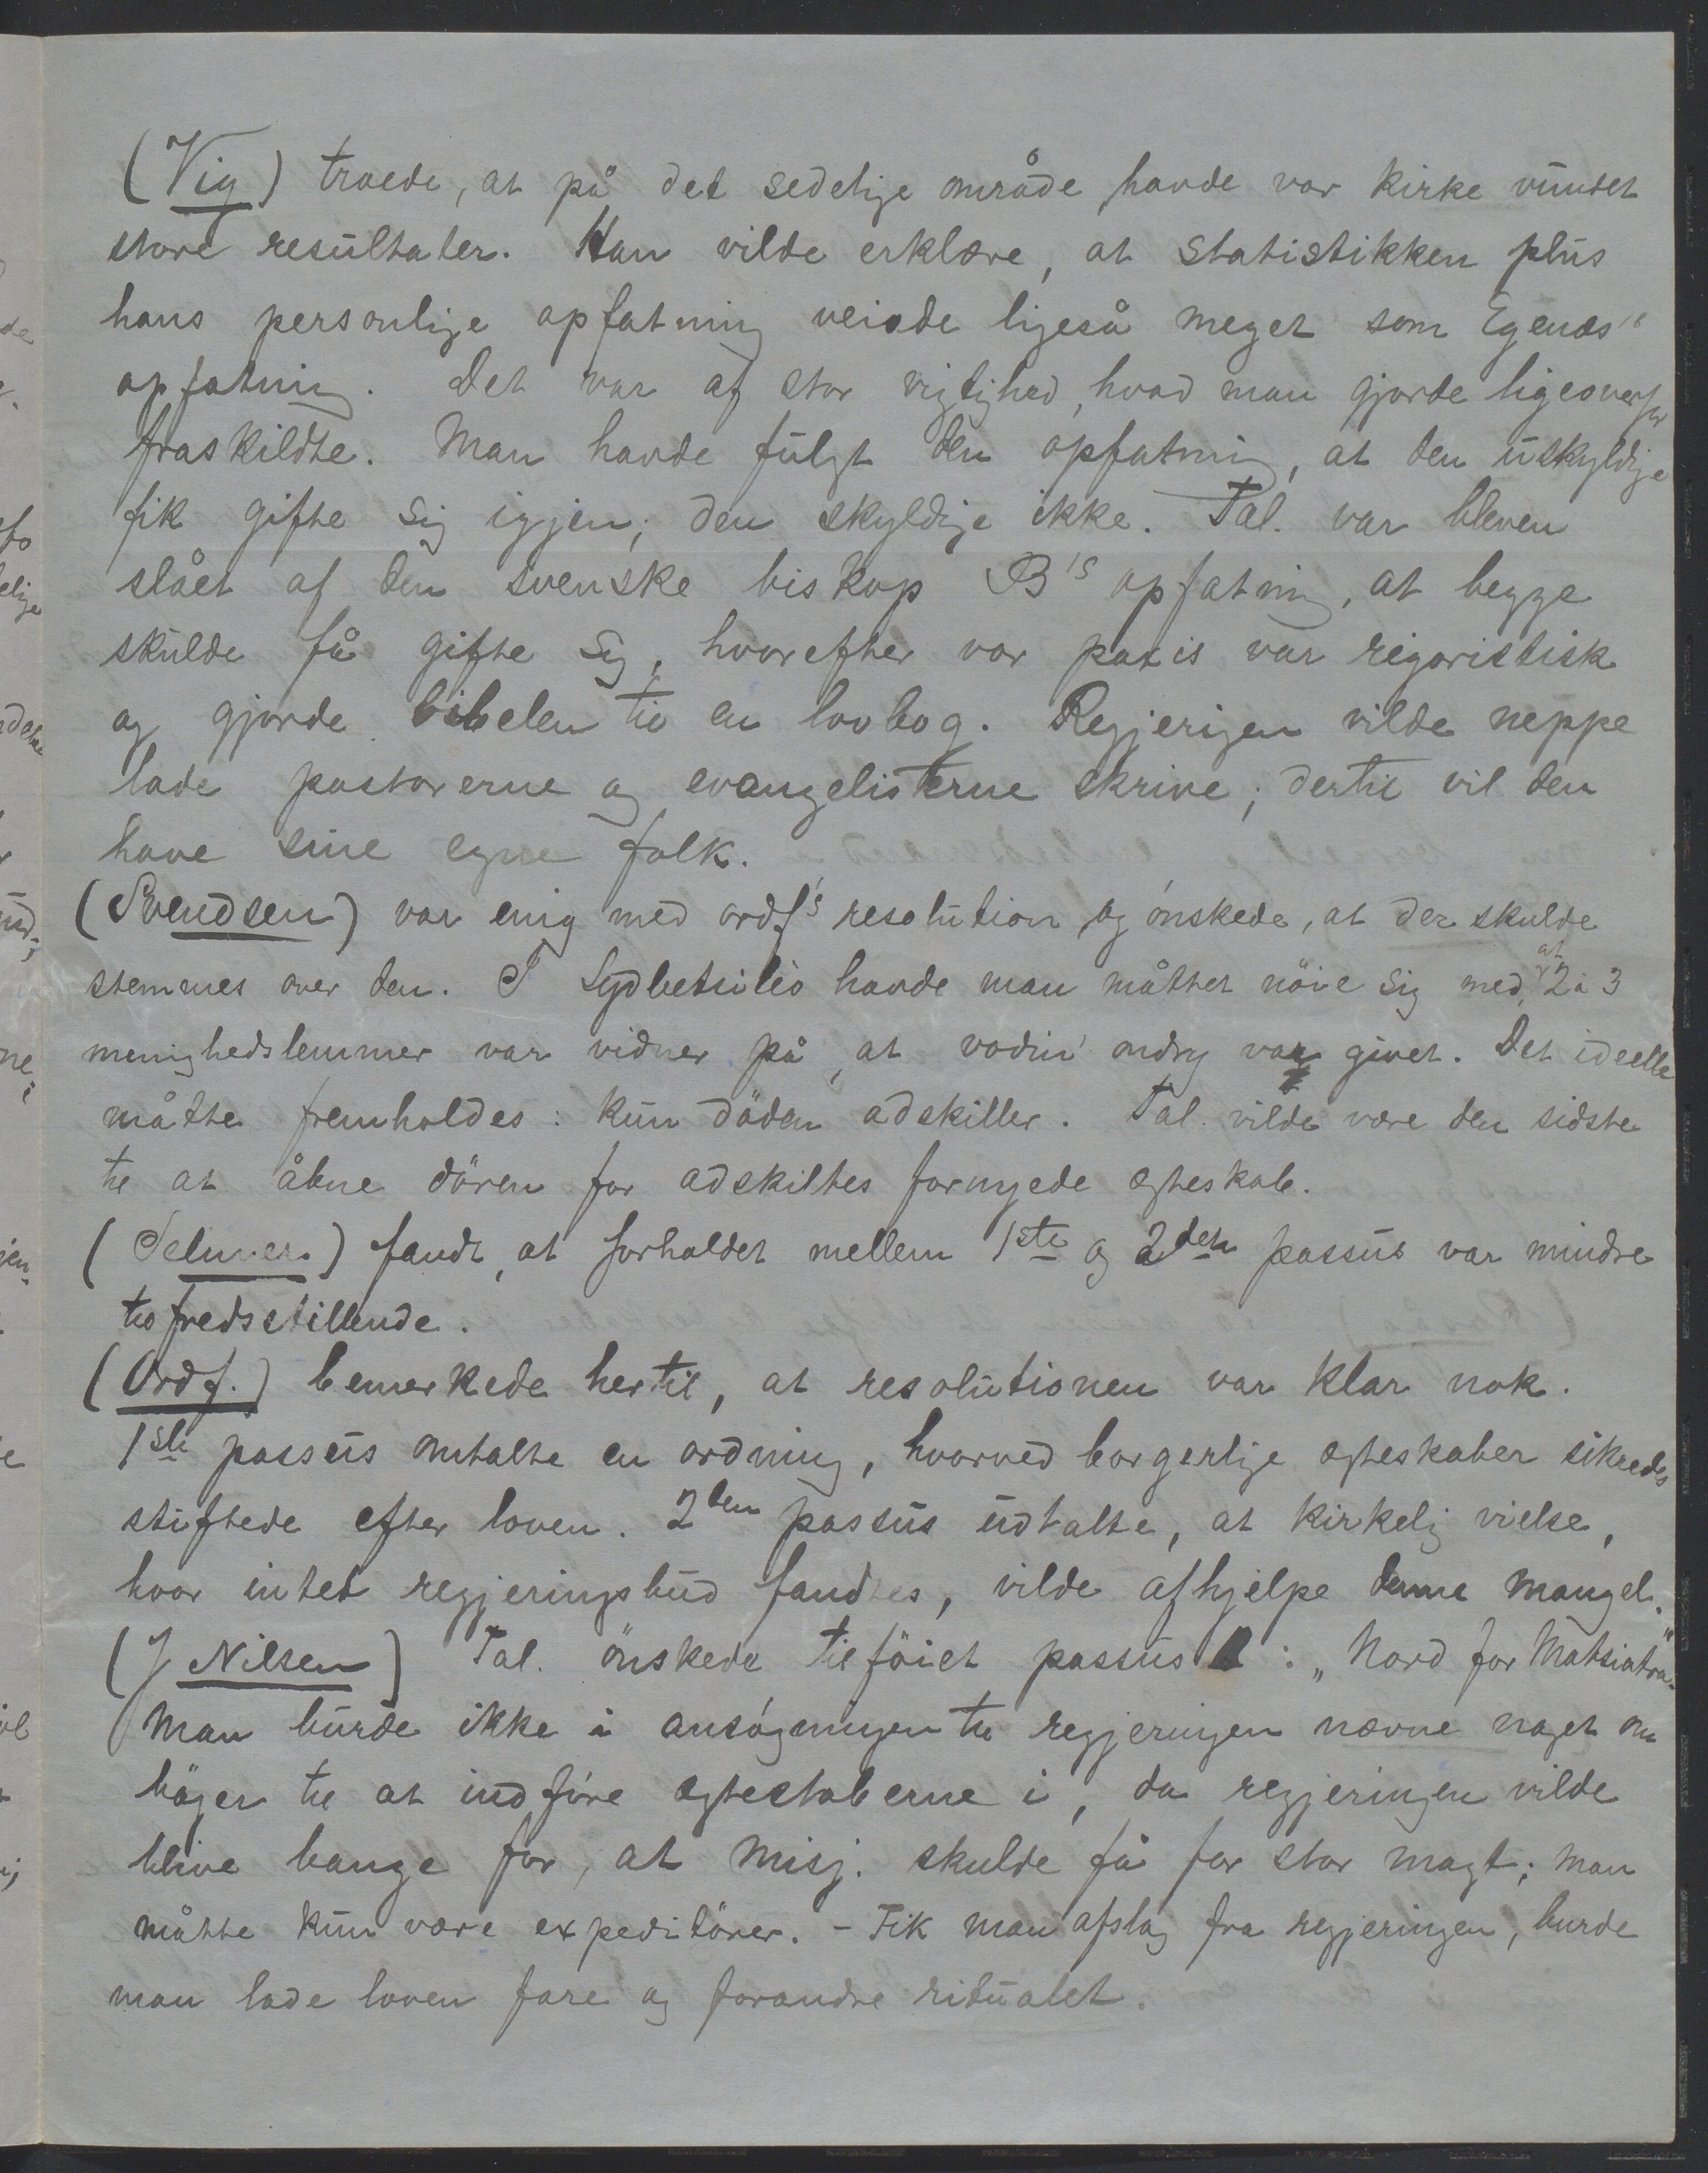 (Vig) troede, at på det sedelige område havde vor kirke vundet
store resultater. Han vilde erklære, at statistikken plus
hans personlige opfatning veiede ligeså meget som Egenæs's
opfatning. Det var af stor vigtighed, hvad man gjorde ligeoverfor
fraskildte. Man havde fulgt den opfatning, at den uskyldige
fik gifte sig igjen, den skyldige ikke. Tal. var bleven
slået af den svenske biskop B's opfatning, at begge
skulde få gifte sig, hvorefter vor paxis var rigoristisk
og gjorde bibelen til en lovbog. Regjerigen vilde neppe
lade pastorerne og evangelisterne skrive; dertil vil den
have sine egne folk.
(Svendsen) var enig med ordf's resolution og ønskede, at der skulde
stemmes over den. I Sydbetsileo havde man måttet nöie sig med, at 2 à 3
menighedslemmer var vidner på, at vodin' ondry var givet. Det ideelle
måtte fremholdes: kun döden adskiller. Tal. vilde være den sidste
til at åbne dören for adskiltes fornyede egteskab.
(Selmer) fandt, at forholdet mellem 1ste og 2det passus var mindre
tilfredsstillende.
(Ordf.) bemerkede hertil, at resolutionen var klar nok.
1ste passus omtalte en ordning, hvorved borgerlige egteskaber sikredes
stiftede efter loven. 2den passus udtalte, at kirkelig vielse,
hvor intet regjeringsbud fandtes, vilde afhjelpe denne mangel.
(J Nilsen) Tal. önskede tilföiet passus 1: „Nord for Matsiatra."
Man burde ikke i ansögningen til regjeringen nævne noget om
böger til at indføre egteskaberne i, da regjeringen vilde
blive bange for, at misj. skulde få for stor magt; man
måtte kun være expeditörer. – Fik man afslag fra regjeringen, burde
man lade loven fare og forandre ritualet.